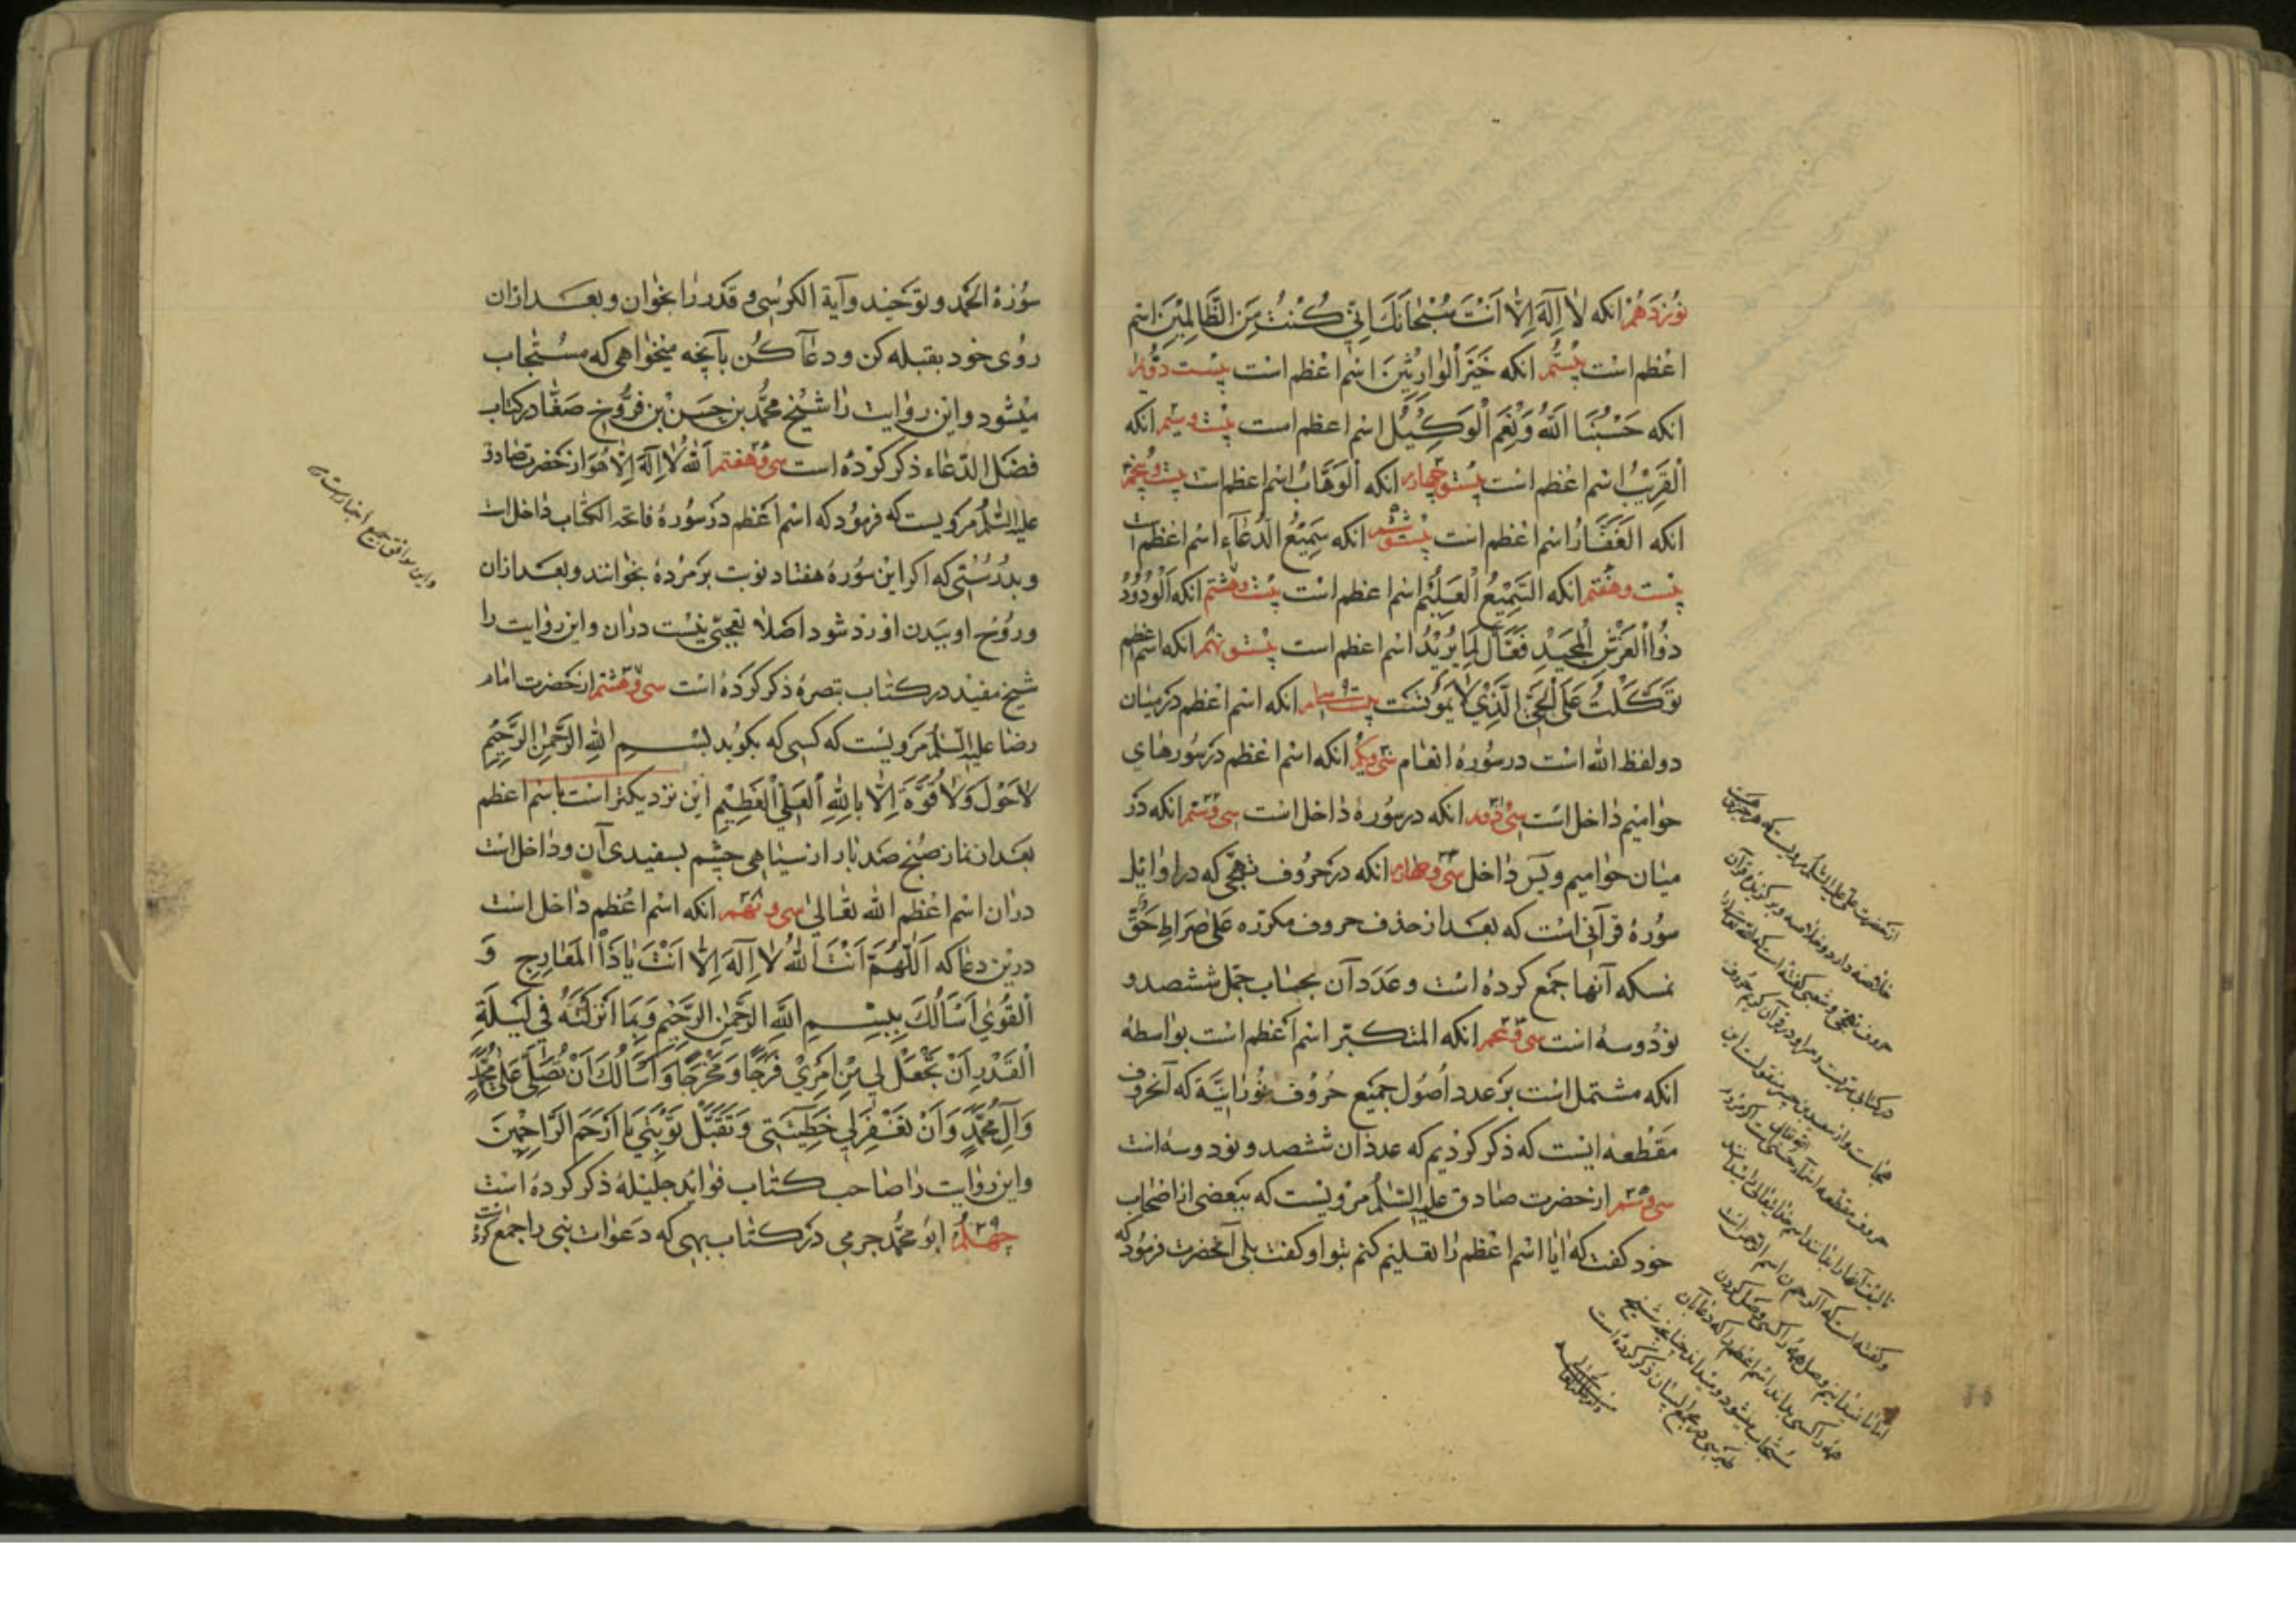 نوزدهم انکه لا اله الا انت سبحانک انی کنت من الظالمین اسم
اعظم است بیستم انکه خیر الوارثین اسم اعظم است بیست دویم
انکه حسبنا الله و نعم الوکیل اسم اعظم است بیست و سیم انکه
القریب اسم اعظم است بیست و چهارم انکه الوهاب اسم اعظم است بیست و پنجم
انکه الغفار اسم اعظم است بیست و ششم انکه سمیع الدعاء اسم اعظم است
بیست و هفتم انکه السمیع العلیم اسم اعظم است بیست و هشتم انکه الودود
ذوا العرش المجید فعال لما یرید اسم اعظم است بیست و نهم انکه اسم اعظم
توکلت علی الحی الذی لا یموتست انکه اسم اعظم در میان
دو لفظ الله است در سوره انعام سی و یکم انکه اسم اعظم در سورهای
حوامیم داخل است سی و دویم انکه در سوره داخل است سی و سیم انکه در
میان حوامیم و یس داخل سی و چهارم انکه در حروف تهجی که در اوایل
سوره قرآنی است که بعد از حذف حروف مکرره علی صراط حق
نمسکه آنها جمع کرده است و عدد آن بحساب جمل ششصد و
نود و سه است سی و پنجم انکه المتکبر اسم اعظم است بواسطه
انکه مشتمل است بر عدد اصول جمیع حروف نورانیة که آنحروف
مقطعه اینست که ذکر کردیم که عدد ان ششصد و نود و سه است
سی و ششم از حضرت صادق علیه السلام مرویست که ببعضی از اصحاب
خود گفت که ایا اسم اعظم را تعلیم کنم بتو او گفت بلی آنحضرت فرمود که
از حضرت علی علیه السلام مرویست که هر چیزی
خلاصه دارد و خلاصه و برگزیده قرآن
حروف تهجی و شعبی گفته است که الله تعالی را
در کتابی سریست و سر او در قرآن حروف
تهجی است و از سعید بن جبیر منقولست این
حروف مقطعه اسماء حسنی است اگر مردم
تالیف آنها را بدانند اسم خدایتعالی را میدانند
و گفته است که الر حم ن اسم الرحمن است
مستجاب میشود و میداند چنانچه شیخ
طبرسی در مجمع البیان ذکر کرده است
سوره الحمد و توحید و آیة الکرسی و قدر را بخوان و بعد از ان
روی خود بقبله کن و دعا کن بآنچه میخواهی که مستجاب
میشود و این روایت را شیخ محمد بن حسن بن فروخ صفار در کتاب
فضل الدعاء ذکر کرده است سی و هفتم الله لا اله الا هو از حضرت صادق
علیه السلام مرویست که فرمود که اسم اعظم در سوره فاتحه الکتاب داخل است
و بدرستی که اگر این سوره هفتاد نوبت بر مرده بخوانند و بعد از ان
و روح او ببدن او رد شود اصلا تعجبی نیست در ان و این روایت را
شیخ مفید در کتاب تبصره ذکر کرده است سی و هشتم از حضرت امام
رضا علیه السلام مرویست که کسی که بکوید بسم الله الرحمن الرحیم
لا حول و لا قوة الا بالله العلی العظیم این نزدیکتر است باسم اعظم
بعد از نماز صبح صد بار از سیاهی چشم بسفیدی آن و داخل است
در ان اسم اعظم الله تعالی سی و نهم انکه اسم اعظم داخل است
درین دعا که اللهم انت الله لا اله الا انت یا ذا المعارج و
القوی اسالک ببسم الله الرحمن الرحیم و بما انزلته فی لیلة
القدر ان تجعل لی من امری فرجا و مخرجا و اسالک ان تصلی علی محمد
و آل محمد و ان تغفر لی خطیئتی و تقبل توبتی یا ارحم الراحمین
و این روایت را صاحب کتاب فواید جلیله ذکر کرده است
چهلم ابو محمد جرمی در کتاب بهی که دعوات نبی را جمع کرده
و این موافق جمیع اخبار است